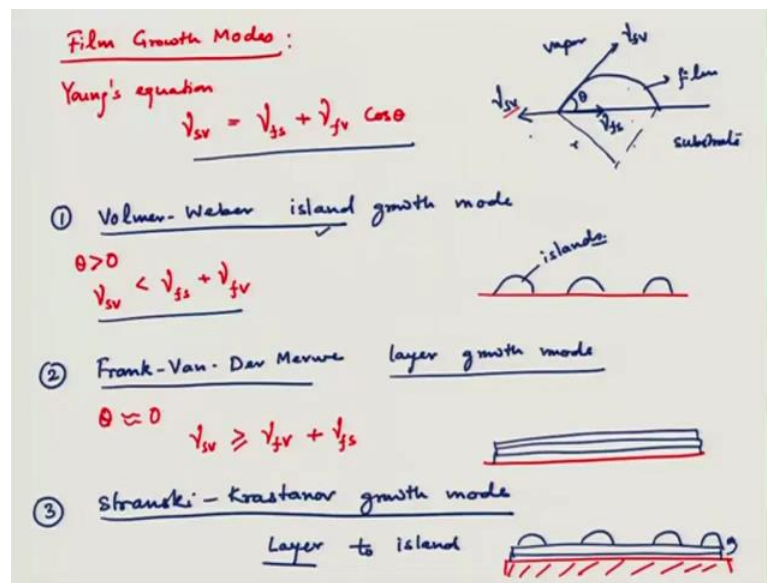 Film Growth Modes :
Young's equation
γsv = γfs + γfv Cosθ
vapor
γsv
film
θ
γsv
γfs
substrate
① Volmer-Weber island growth mode
θ>0
γsv < γfs + γfv
islands
② Frank-Van-Der Merwe layer growth mode
θ ≈ 0
γsv ⩾ γfv + γfs
③ Stranski-Krastanov growth mode
Layer to island